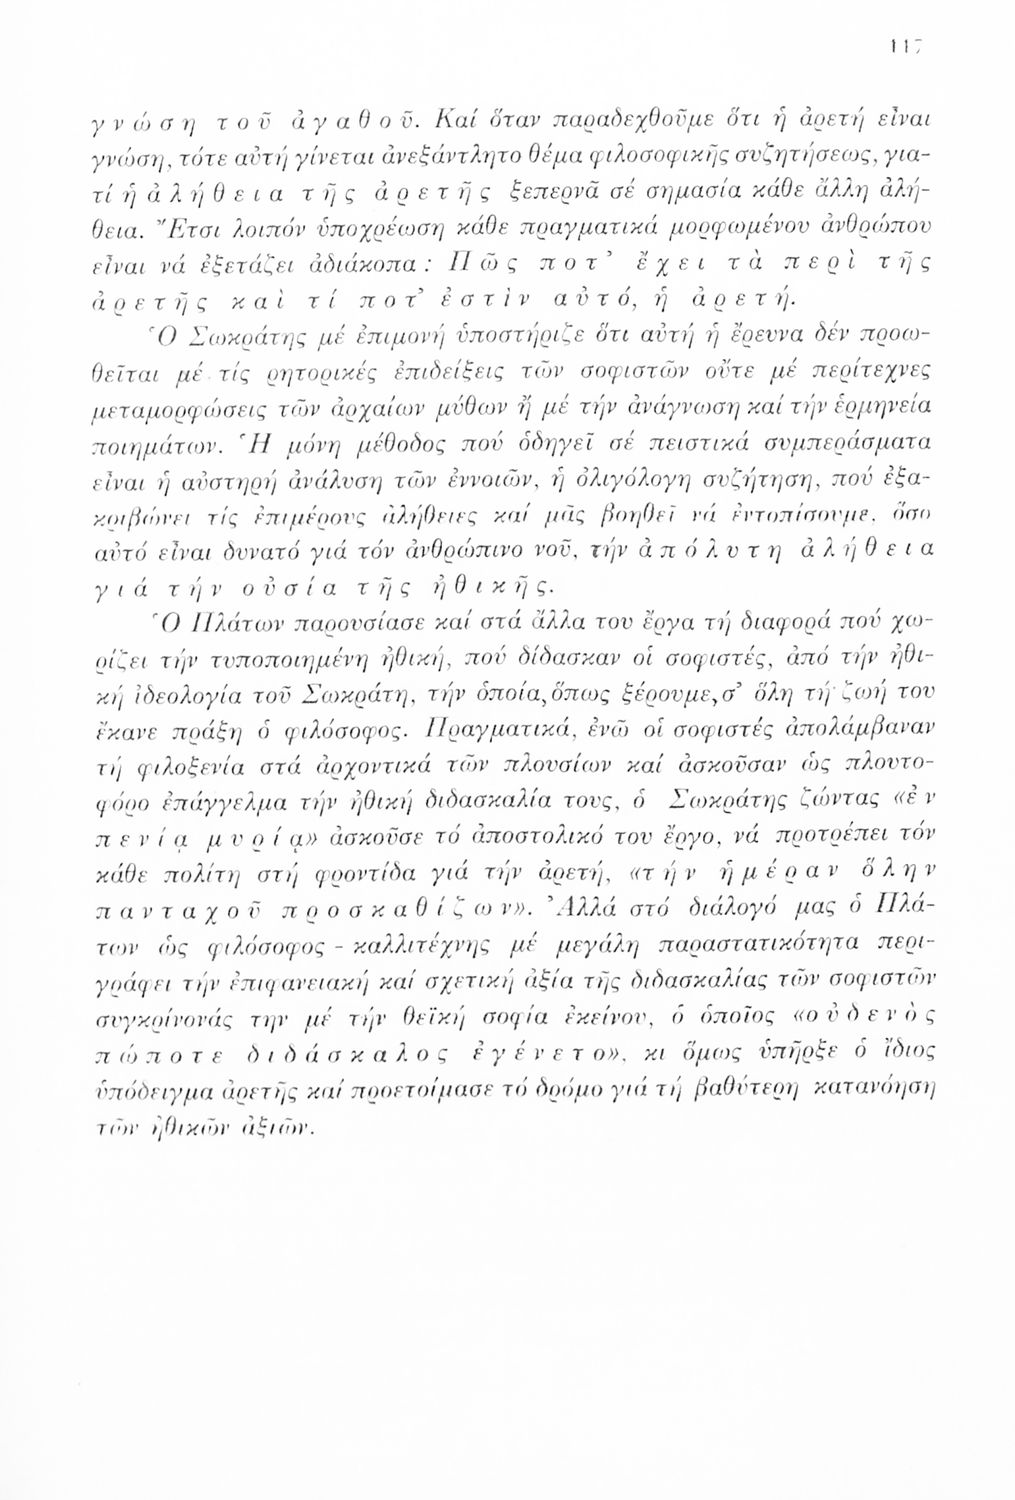 117
γ ν ώ σ η τ ο ῦ ἀ γ α θ ο ῦ. Καί ὅταν παραδεχθοῦμε ὅτι ἡ ἀρετή εἶναι
γνώση, τότε αὐτή γίνεται ἀνεξάντλητο θέμα φιλοσοφικῆς συζητήσεως, για-
τί ἡ ἀ λ ή θ ε ι α τ ῆ ς ἀ ρ ε τ ῆ ς ξεπερνᾶ σέ σημασία κάθε ἄλλη ἀλή-
θεια. Ἔτσι λοιπόν ὑποχρέωση κάθε πραγματικά μορφωμένου ἀνθρώπου
εἶναι νά ἐξετάζει ἀδιάκοπα : Π ῶ ς π ο τ ’ ἔ χ ε ι τ ὰ π ε ρ ὶ τ ῆ ς
ἀ ρ ε τ ῆ ς κ α ὶ τ ί π ο τ’ ἐ σ τ ὶ ν α ὐ τ ό, ἡ ἀ ρ ε τ ή.
Ὁ Σωκράτης μέ ἐπιμονή ὑποστήριζε ὅτι αὐτή ἡ ἔρευνα δέν προω-
θεῖται μέ τίς ρητορικές ἐπιδείξεις τῶν σοφιστῶν οὔτε μέ περίτεχνες
μεταμορφώσεις τῶν ἀρχαίων μύθων ἤ μέ τήν ἀνάγνωση καί τήν ἑρμηνεία
ποιημάτων. Ἡ μόνη μέθοδος πού ὁδηγεῖ σέ πειστικά συμπεράσματα
εἶναι ἡ αὐστηρή ἀνάλυση τῶν ἐννοιῶν, ἡ ὀλιγόλογη συζήτηση, πού ἐξα-
κριβώνει τίς ἐπιμέρους ἀλήθειες καί μᾶς βοηθεῖ νά ἐντοπίσουμε, ὅσο
αὐτό εἶναι δυνατό γιά τόν ἀνθρώπινο νοῦ, τήν ἀ π ό λ υ τ η ἀ λ ή θ ε ι α
γ ι ά τ ή ν ο ὐ σ ί α τ ῆ ς ἠ θ ι κ ῆ ς.
Ὁ Πλάτων παρουσίασε καί στά ἄλλα του ἔργα τή διαφορά πού χω-
ρίζει τήν τυποποιημένη ἠθική, πού δίδασκαν οἱ σοφιστές, ἀπό τήν ἠθι-
κή ἰδεολογία τοῦ Σωκράτη, τήν ὁποία, ὅπως ξέρουμε, σ’ ὅλη τή ζωή του
ἔκανε πράξη ὁ φιλόσοφος. Πραγματικά, ἐνῶ οἱ σοφιστές ἀπολάμβαναν
τή φιλοξενία στά ἀρχοντικά τῶν πλουσίων καί ἀσκοῦσαν ὡς πλουτο-
φόρο ἐπάγγελμα τήν ἠθική διδασκαλία τους, ὁ Σωκράτης ζώντας «ἐ ν
π ε ν ί ᾳ μ υ ρ ί ᾳ» ἀσκοῦσε τό ἀποστολικό του ἔργο, νά προτρέπει τόν
κάθε πολίτη στή φροντίδα γιά τήν ἀρετή, «τ ή ν ἡ μ έ ρ α ν ὅ λ η ν
π α ν τ α χ ο ῦ π ρ ο σ κ α θ ί ζ ω ν». Ἀλλά στό διάλογό μας ὁ Πλά-
των ὡς φιλόσοφος - καλλιτέχνης μέ μεγάλη παραστατικότητα περι-
γράφει τήν ἐπιφανειακή καί σχετική ἀξία τῆς διδασκαλίας τῶν σοφιστῶν
συγκρίνονάς την μέ τήν θεϊκή σοφία ἐκείνου, ὁ ὁποῖος «ο ὐ δ ε ν ὸ ς
π ώ π ο τ ε δ ι δ ά σ κ α λ ο ς ἐ γ έ ν ε τ ο», κι ὅμως ὑπῆρξε ὁ ἴδιος
ὑπόδειγμα ἀρετῆς καί προετοίμασε τό δρόμο γιά τή βαθύτερη κατανόηση
τῶν ἠθικῶν ἀξιῶν.